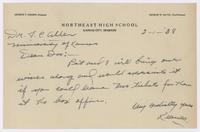 NORTHEAST HIGH SCHOOL
KANSAS CITY, MISSOURI
Dr. F. C. Allen
University of Kansas
Dear Doc:-
But and I will bring our
wives along and would appreciate it
if you could leave two tickets for them
at the box office.
Very